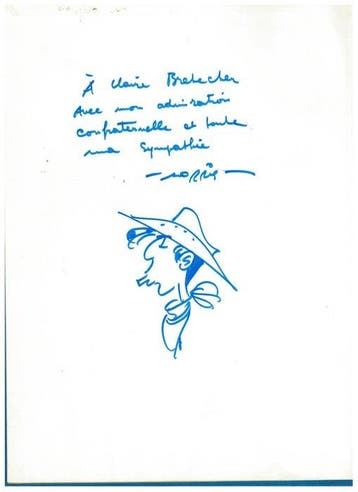 À Claire Bretecher
Avec mon admiration
confraternelle et toute
ma sympathie
— MORRIS —